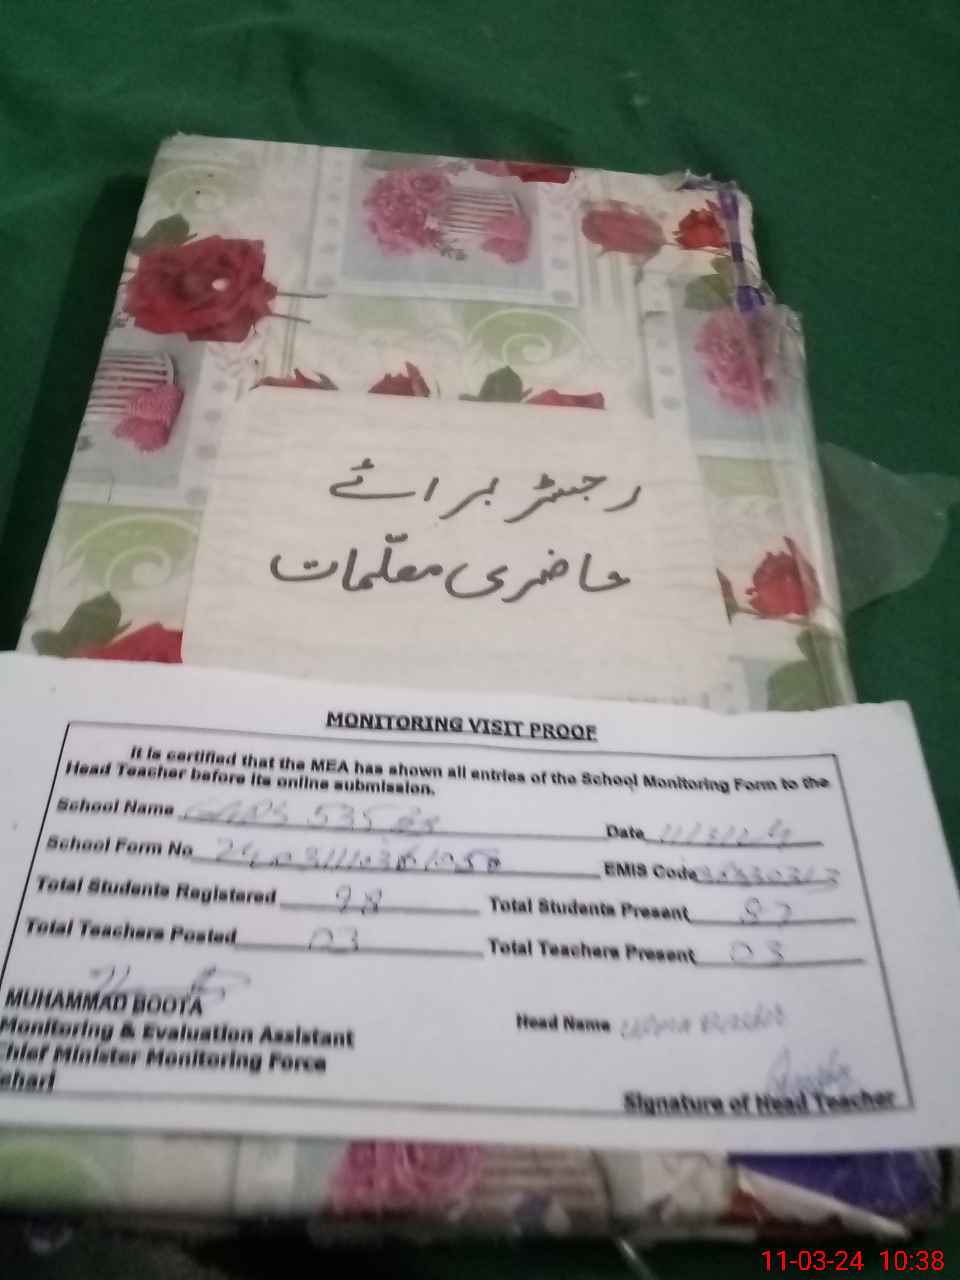 رجسٹر برائے
حاضری معلّمات
MONITORING VISIT PROOF
It is certified that the MEA has shown all entries of the School Monitoring Form to the
Head Teacher before its online submission.
School Name
Date 11/3/24
School Form No
EMIS Code
Total Students Registered 98
Total Students Present 87
Total Teachers Posted 03
Total Teachers Present 03
MUHAMMAD BOOTA
Monitoring & Evaluation Assistant
Chief Minister Monitoring Force
ehari
Head Name
Signature of Head Teacher
11-03-24 10:38